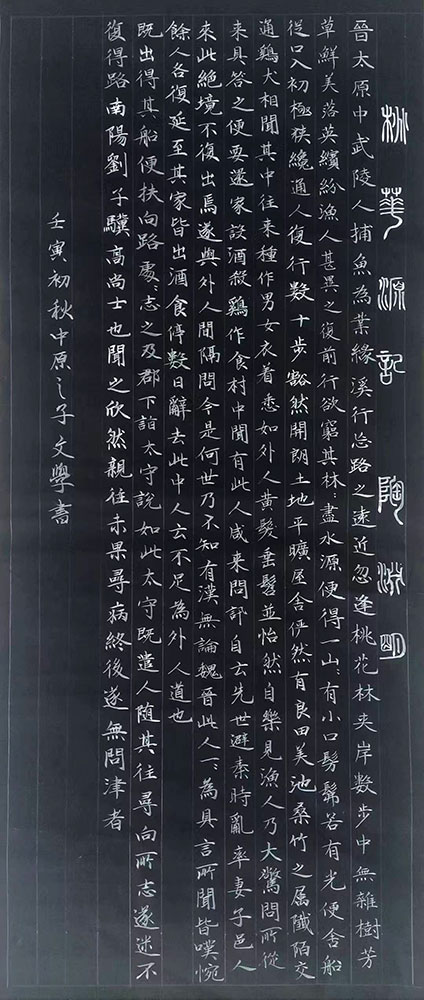 桃華源記 陶淵明
晉太原中武陵人捕魚為業緣溪行忘路之遠近忽逢桃花林夾岸數步中無雜樹芳
草鮮美落英繽紛漁人甚異之復前行欲窮其林〻盡水源便得一山〻有小口髣髴若有光便舍船
從口入初極狹纔通人復行數十步豁然開朗土地平曠屋舍俨然有良田美池桑竹之属阡陌交
通鷄犬相聞其中往来種作男女衣着悉如外人黄髮垂髫並怡然自樂見漁人乃大驚問所從
来具答之便要還家設酒殺鷄作食村中聞有此人咸来問訊自云先世避秦時亂率妻子邑人
来此絶境不復出焉遂與外人間隔問今是何世乃不知有漢無論魏晉此人一〻為具言所聞皆嘆惋
餘人各復延至其家皆出酒食停數日辭去此中人云不足為外人道也
既出得其船便扶向路處〻志之及郡下詣太守說如此太守既遣人随其往尋向所志遂迷不
復得路南陽劉子驥高尚士也聞之欣然親往未果尋病終後遂無問津者
壬寅初秋中原之子文學書